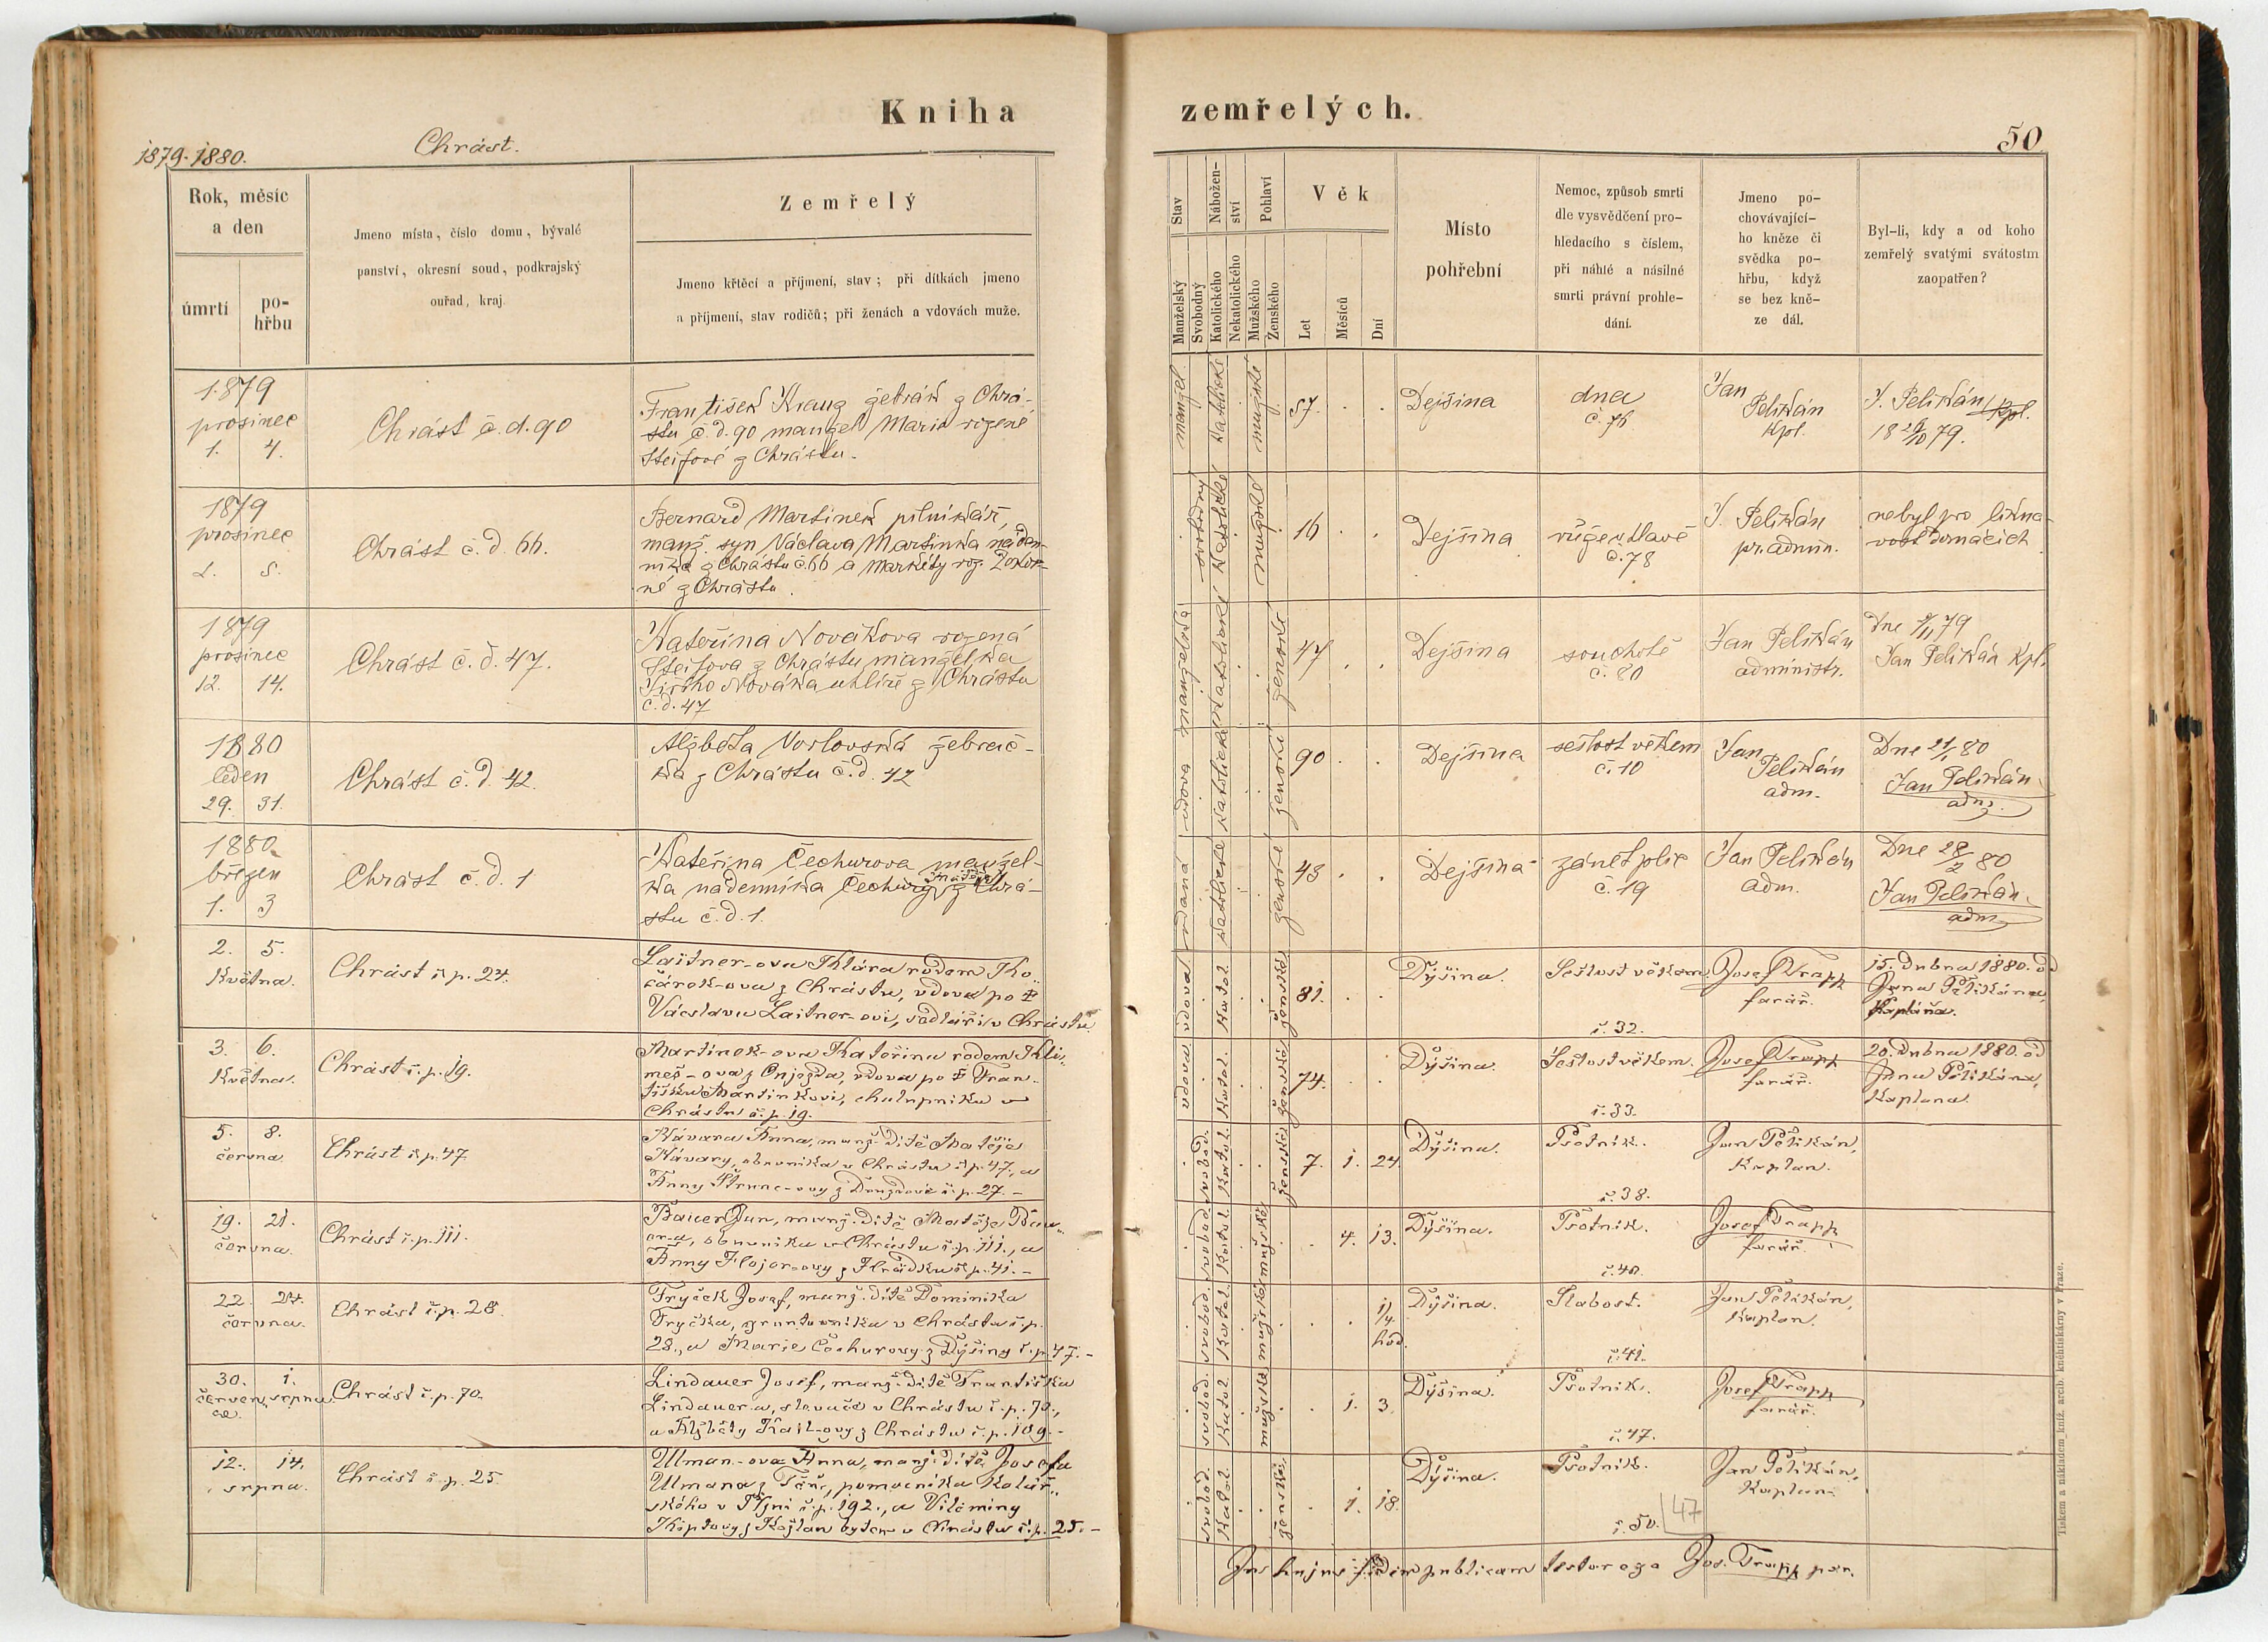 Kniha
zemřelých.
1879-1880.
Chrást.
50
Rok, měsíc
a den
úmrtí
po-
hřbu
Jmeno místa, číslo domu, bývalé
panství, okresní soud, podkrajský
ouřad, kraj.
Zemřelý
Jmeno křtěcí a příjmení, stav; při dítkách jmeno
a příjmení, stav rodičů; při ženách a vdovách muže.
Stav
Manželský
Svobodný
Nábožen-
ství
Katolického
Nekatolického
Pohlaví
Mužského
Ženského
Věk
Let
Měsíců
Dní
Místo
pohřební
Nemoc, způsob smrti
dle vysvědčení pro-
hledacího s číslem,
při náhlé a násilné
smrti právní prohle-
dání.
Jmeno po-
chovávající-
ho kněze či
svědka po-
hřbu, když
se bez kně-
ze dál.
Byl-li, kdy a od koho
zemřelý svatými svátostmi
zaopatřen?
1879
prosinec
1. 4.
Chrást č.d. 90
František Kraus žebrák z Chrá-
stu č.d. 90 manžel Marie rozené
Steifové z Chrástu.
manžel
katolické
mužské
57. . .
Dejšina
dna
č. 76
Jan
Pelikán
kpl.
J. Pelikán kpl.
18 29/10 79.
1879
prosinec
2. 5.
Chrást č.d. 66.
Bernard Martinek pilníkář,
manž. syn Václava Martinka náden-
níka z Chrástu č. 66 a Markéty roz. Pokor-
né z Chrástu.
svobodný
katolické
mužské
16 . .
Dejšina
růže v hlavě
č. 78
J. Pelikán
pr. admin.
nebyl pro likna-
vost domácích
1879
prosinec
12. 14.
Chrást č.d. 47.
Kateřina Nováková rozená
Steifova z Chrástu manželka
Jiřího Nováka uhlíře z Chrástu
č.d. 47
manželka
katolické
ženské
47 . .
Dejšina
souchotě
č. 80
Jan Pelikán
administr.
Dne 9/11 79
Jan Pelikán kpl.
1880
leden
29. 31.
Chrást č.d. 42.
Alžběta Vorlovská žebrač-
ka z Chrástu č.d. 42
vdova
katolické
ženské
90 . .
Dejšina
sešlost věkem
č. 10
Jan
Pelikán
adm.
Dne 21/1 80
Jan Pelikán
adm.
1880
březen
1. 3
Chrást č.d. 1
Kateřina Čechurova manžel-
ka nadenníka Čechury z Chrá-
stu č.d. 1.
vdaná
katolické
ženské
43 . .
Dejšina
zánět plic
č. 19
Jan Pelikán
adm.
Dne 28/2 80
Jan Pelikán
adm.
2. 5.
Května.
Chrást č.p. 24.
Laitner-ova Klára rodem Ko-
cárek-ova z Chrástu, vdova po †
Václavu Laitner-ovi, sedláři v Chrástu
vdova
Katol.
ženské
81. . .
Dýšina.
Sešlost věkem
č. 32.
Josef Trapp
farář.
15. Dubna 1880. od
Jana Pelikána,
Kaplána.
3. 6.
Května.
Chrást č.p. 19.
Martinek-ova Kateřina rodem Kli-
meš-ova z Onjezda, vdova po † Fran-
tišku Martinkovi, chalupníku v
Chrástu č.p. 19.
vdova
Katol.
ženské
74. . .
Dýšina.
Sešlost věkem.
č. 33.
Josef Trapp
farář.
20. Dubna 1880. od
Jana Pelikána,
Kaplana.
5. 8.
června.
Chrást č.p. 47
Návara Anna, manž. dítě Matěje
Návary, obuvníka v Chrástu č.p. 47., a
Anny Strunc-ovy z Druzdové č.p. 27. -
svobod.
Katol.
ženské
7. 1. 24.
Dýšina.
Psotník.
č. 38.
Jan Pelikán,
Kaplan.
19. 21.
června.
Chrást č.p. 111.
Bauer Jan, manž. dítě Matěje Bau-
er-a, obuvníka v Chrástu č.p. 111., a
Anny Flajer-ovy z Hrádku č.p. 41. -
svobod.
Katol.
mužské
. 4. 13.
Dýšina.
Psotník.
č. 40.
Josef Trapp
farář.
22. 24.
června.
Chrást č.p. 28.
Tryček Josef, manž. dítě Dominika
Tryčka, gruntovníka v Chrástu č.p.
28., a Marie Čechurovy z Dýšiny č.p. 47. -
svobod.
Katol.
mužské
. . 1/4
hod.
Dýšina.
Slabost.
č. 41.
Jan Pelikán,
Kaplan.
30. 1.
červen-
ce. srpna
Chrást č.p. 70.
Lindauer Josef, manž. dítě Františka
Lindauer-a, slevače v Chrástu č.p. 70.,
a Alžběty Kail-ovy z Chrástu č.p. 109. -
svobod.
Katol.
mužské
. 1. 3.
Dýšina.
Psotník.
č. 47.
Josef Trapp
farář.
12. 14.
srpna.
Chrást č.p. 25.
Ulman-ova Anna, manž. dítě Josefa
Ulmana z pomocníka Kolář-
ského v Plzni č.p. 192., a Vilémíny
z Kojtan bytem v Chrástu č.p. 25. -
svobod.
Katol.
ženské
. 1. 18.
Dýšina.
Psotník.
č. 50.
47
Jan Pelikán,
Kaplan.
fidem publicam testor ego Jos. Trapp par.
Tiskem a nákladem kníž. arcib. kněhtiskárny v Praze.